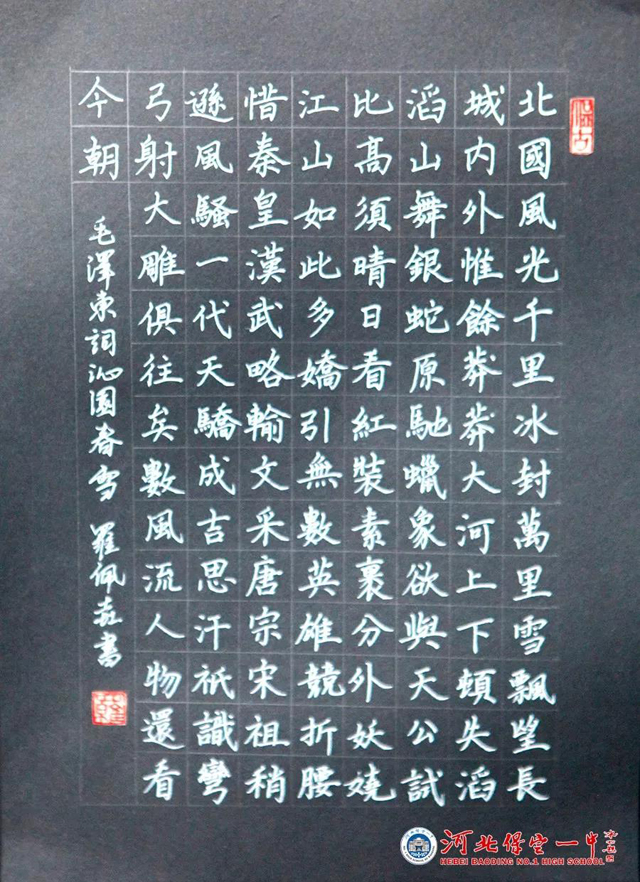 北國風光千里冰封萬里雪飄望長
城内外惟餘莽莽大河上下頓失滔
滔山舞銀蛇原馳蠟象欲與天公試
比高須晴日看紅裝素裹分外妖嬈
江山如此多嬌引無數英雄競折腰
惜秦皇漢武略輸文采唐宗宋祖稍
遜風騷一代天驕成吉思汗祇識彎
弓射大雕俱往矣數風流人物還看
今朝
毛澤東詞沁園春雪 羅佩書
河北保定一中
HEBEI BAODING NO.1 HIGH SCHOOL